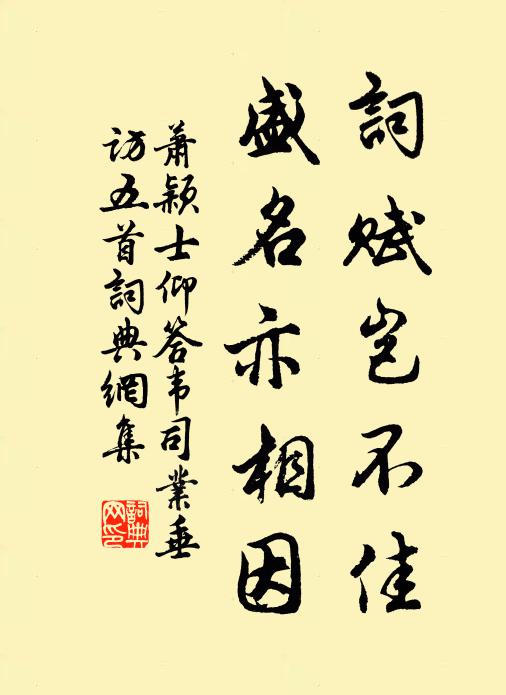 詞賦豈不佳
盛名亦相因
蕭穎士仰答韦司業垂
访五首詞典網集
詞典网印